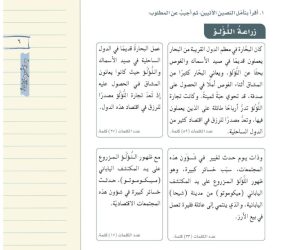 ١. أقرأ بتأمل النصين الآتيين، ثم أجيب عن المطلوب:
زراعة اللُّؤْلُؤ
كان البحارة قديمًا في معظم الدول القريبة من البحار
يعملون في صيد الأسماك والغوص
بحثًا عن اللؤلؤ، ويعاني البحار كثيرًا من
المشاق أثناء الغوص أملًا في الحصول على
صدفة، قد تحوي حبة ثمينة. وكانت تجارة
اللؤلؤ تدرّ أرباحًا طائلة على الذين يعملون
بها، وتعدّ مصدرًا للرزق في اقتصاد كثير من
الدول الساحلية.
عدد الكلمات (٥٩) كلمة.
عمل البحارة قديمًا في الدول
الساحلية في صيد الأسماك
واللُّؤْلُؤ حيث كانوا يعانون
المشاق في الحصول عليه
إذ تعدّ تجارة اللُّؤْلُؤ مصدرًا
للرزق في اقتصاد هذه الدول.
عدد الكلمات (٢٧) كلمة.
وذات يوم حدث تغيير في شؤون هذه
المجتمعات، سبّب خسائر كبيرة، وهو
ظهور اللُّؤْلُؤ المزروع على يد المكتشف
الياباني (ميكوموتو) من مدينة (شيما)
اليابانية، والذي ينتمي إلى عائلة فقيرة تعمل
في بيع الأرز.
عدد الكلمات (٣٣) كلمة.
مع ظهور اللُّؤْلُؤ المزروع
على يد المكتشف الياباني
(ميكوموتو)، حدثت
خسائر كبيرة في شؤون هذه
المجتمعات الاقتصاديّة.
عدد الكلمات (١٧) كلمة.
٦